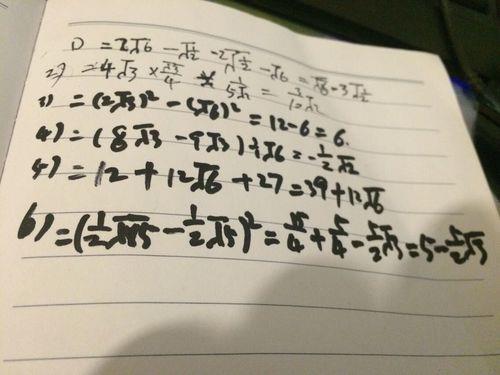 1) =2√6 - √½ - 2√½ - √6 = √6 - 3√½
2) =4√3 × √3/4 × 1/5√2 = 3/10√2
3) =(2√3)² - (√6)² = 12-6=6.
4) =(8√3 - 9√3)÷√6=-½√2
5) =12+12√6+27=39+12√6
6) =(½√15 - ½√5)²=15/4+5/4-5/2√3=5-5/2√3